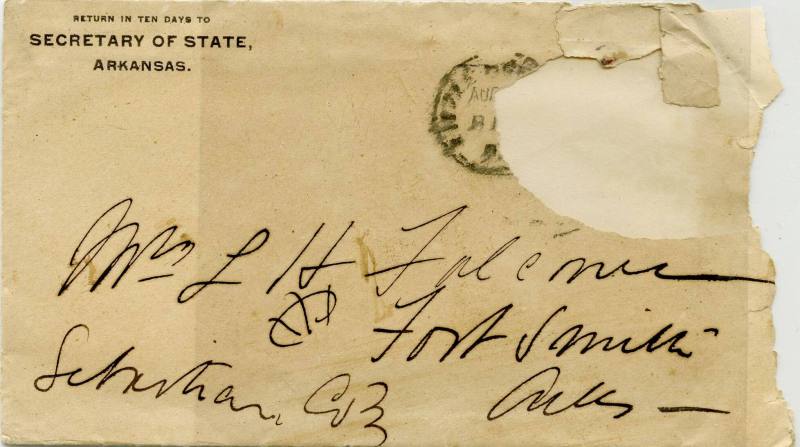 RETURN IN TEN DAYS TO
SECRETARY OF STATE,
ARKANSAS.
AU
Mrs L H Falconer
Fort Smith
Sebastian, Co
Arks